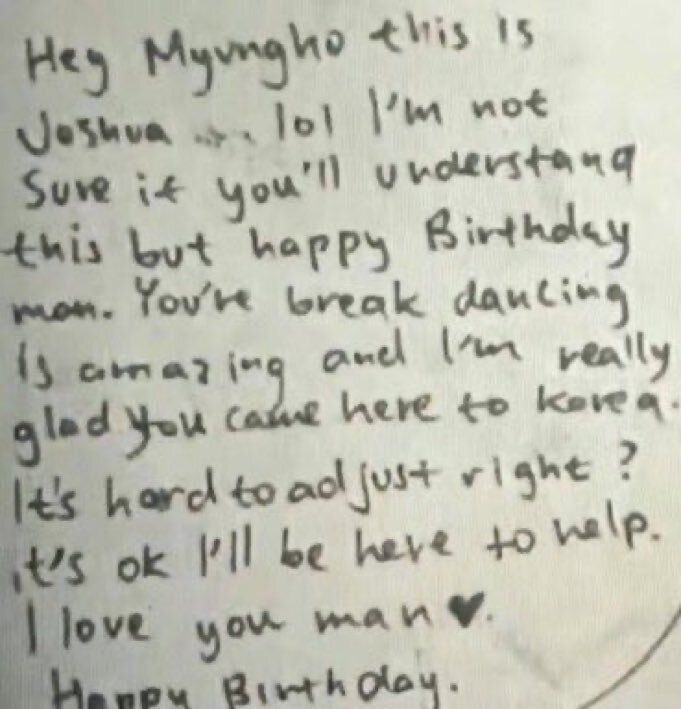 Hey Myungho this is
Joshua .... lol I'm not
Sure if you'll understand
this but happy Birthday
man. You're break dancing
is amazing and I'm really
glad you came here to korea.
It's hard to adjust right?
it's ok I'll be here to help.
I love you man ♥.
Happy Birthday.